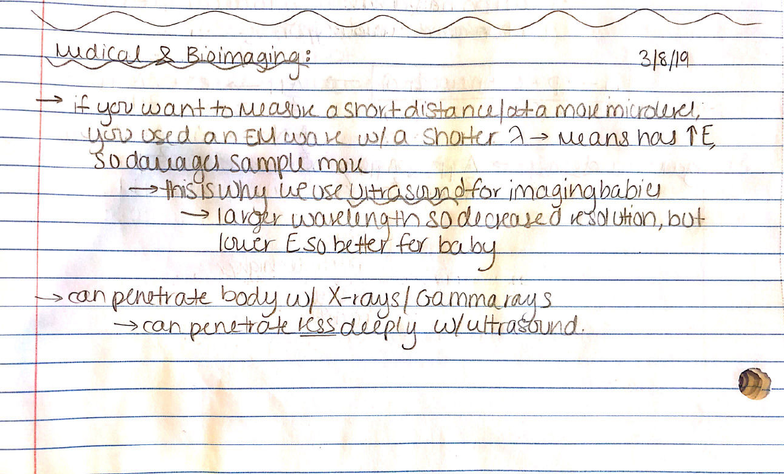 Medical & Bioimaging:
3/8/19
→ if you want to measure a short distance/at a more microlevel,
you used an EM wave w/ a shorter λ → means has ↑E,
so damages sample more
→ this is why we use ultrasound for imaging babies
→ larger wavelength so decreased resolution, but
lower E so better for baby
→ can penetrate body w/ X-rays/Gamma rays
→ can penetrate less deeply w/ ultrasound.